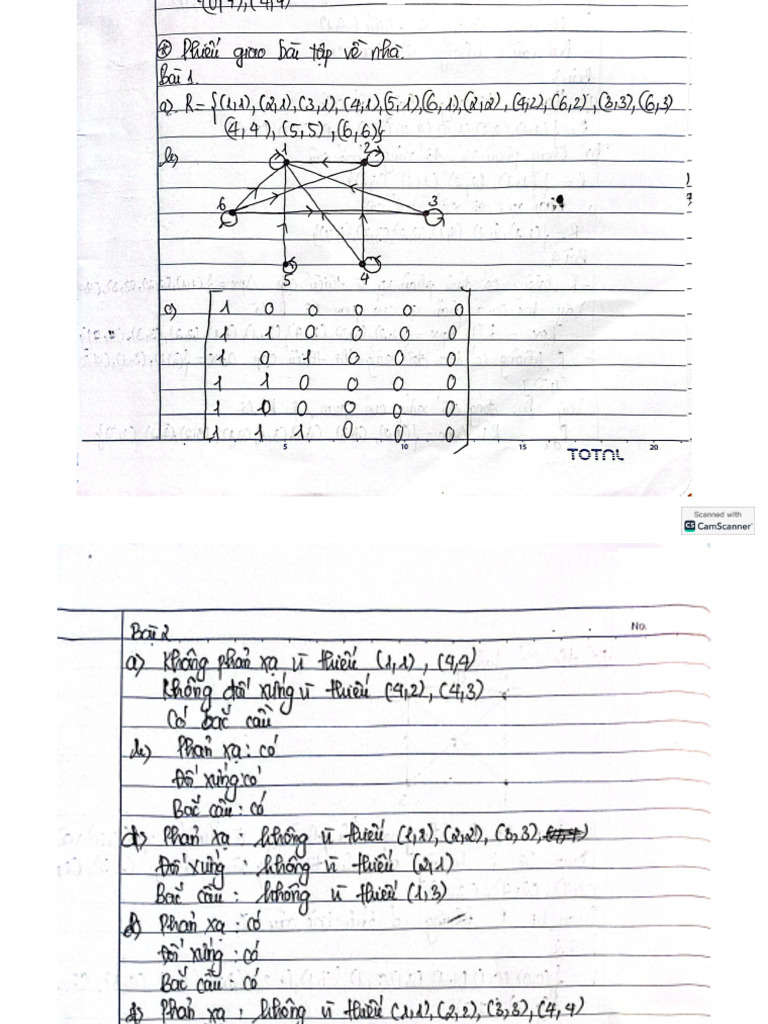 (0,4), (4,4)
⊛ Phiếu giao bài tập về nhà.
Bài 1.
a) R = {(1,1), (2,1), (3,1), (4,1), (5,1), (6,1), (2,2), (4,2), (6,2), (3,3), (6,3)
(4,4), (5,5), (6,6)}
b)
1 2
6 3
5 4
c)
1 0 0 0 0 0
1 1 0 0 0 0
1 0 1 0 0 0
1 1 0 0 0 0
1 0 0 0 0 0
1 1 1 0 0 0
5 10 15 20
TOTAL
Scanned with
CS CamScanner
Bài 2
No.
a) Không phản xạ vì thiếu (1,1), (4,4)
Không đối xứng vì thiếu (4,2), (4,3)
Có bắc cầu
b) Phản xạ: có
Đối xứng: có
Bắc cầu: có
Phản xạ: không vì thiếu (1,1), (2,2), (3,3),
Đối xứng: không vì thiếu (2,1)
Bắc cầu: không vì thiếu (1,3)
Phản xạ: có
Đối xứng: có
Bắc cầu: có
Phản xạ: không vì thiếu (1,1), (2,2), (3,3), (4,4)